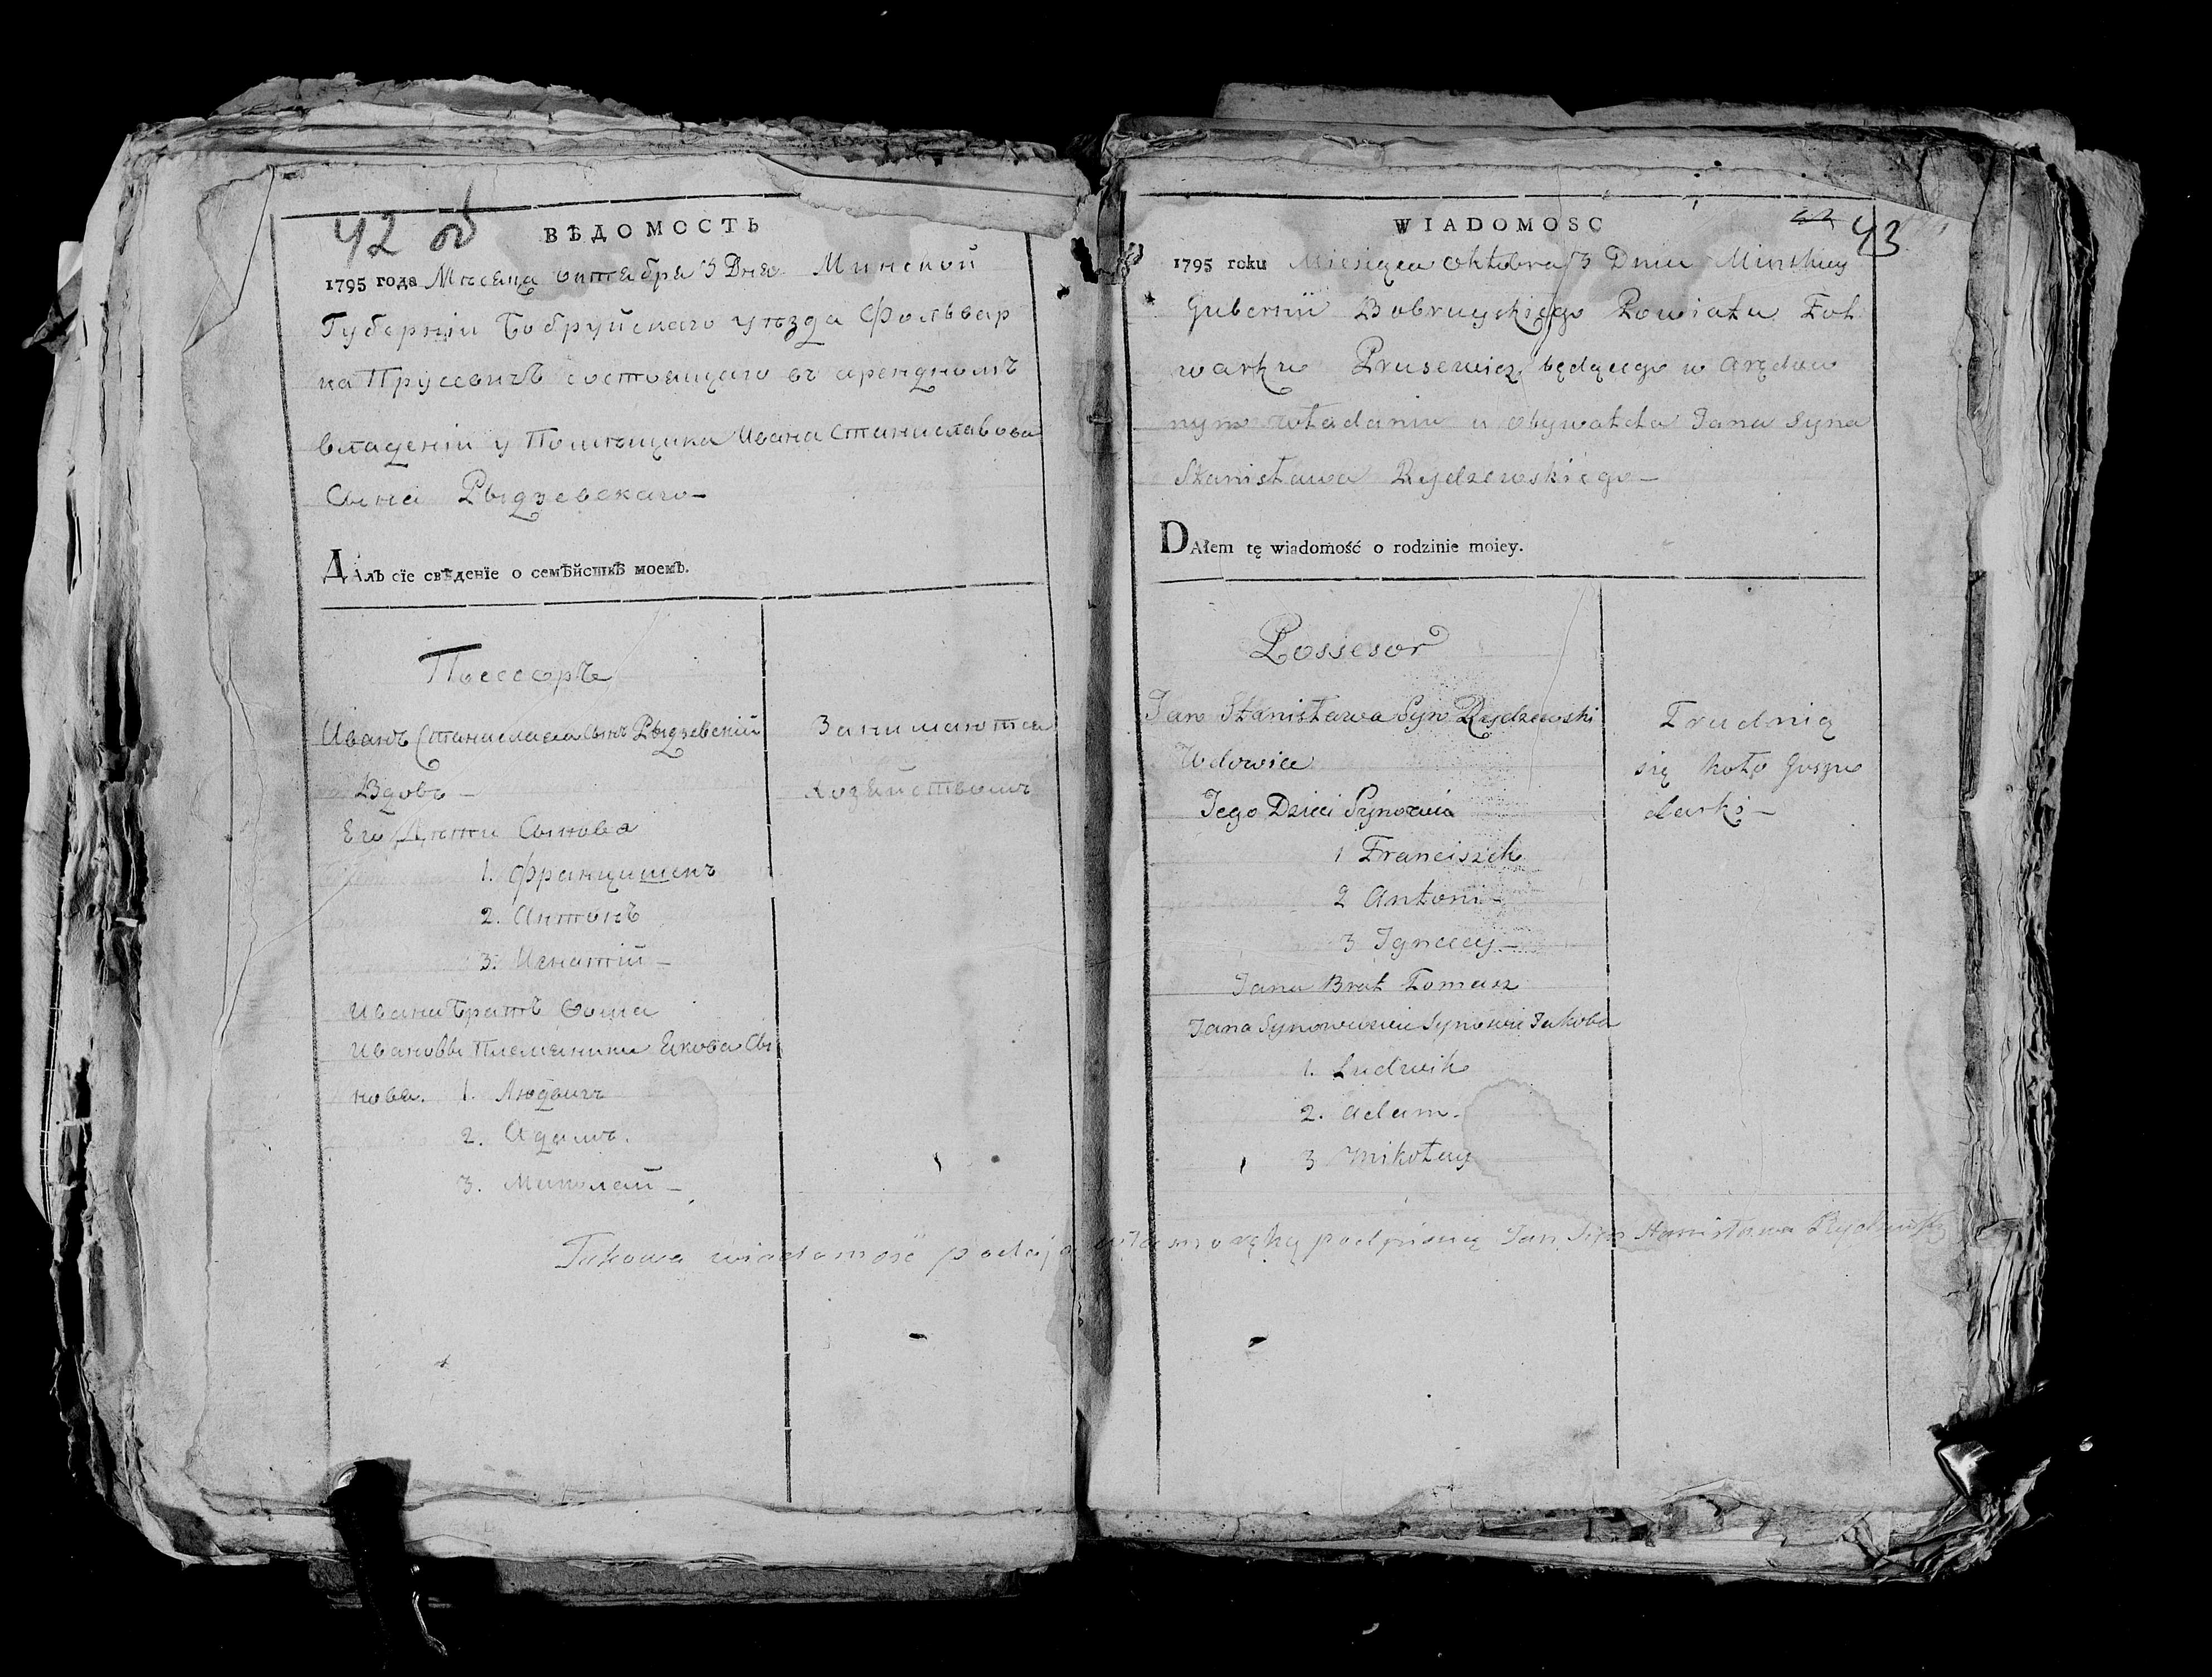 42 об
ВѢДОМОСТЬ
1795 года Мѣсяца октября 3 Дня Минской
Губерніи Бобруйскаго уѣзда Фольвар
ка Прусевичъ состоящаго въ арендномъ
владеніи у Помѣщика Ивана Станиславова
Сына Рыдзевскаго
Далъ сїе свѣденїе о семѣйствѣ моемъ.
Посесоръ
Иванъ Станислава сынъ Рыдзевскій
Вдовъ
Его Дѣти Сыновя
1. Францишекъ
2. Антонъ
3. Игнатій
Ивана Братъ Фома
Ивановы Племяники Якова Сы
новя. 1. Людвигъ
2. Адамъ.
3. Миколай
Занимаются
хозяйствомъ
43
WIADOMOSC
1795 roku Miesiąca Oktobra 3 Dnia Minskiey
Gubernii Bobruyskiego Powiatu Fol
warku Prusewicz będącego w arędow
nym władaniu u obywatela Jana Syna
Stanisława Rydzewskiego
DAłem tę wiadomość o rodzinie moiey.
Possesor
Jan Stanisława Syn Rydzewski
Wdowiec
Jego Dzieci Synowie
1 Franciszek
2 Antoni
3 Ignacy
Jana Brat Tomasz
Jana Synowcowie Synowie Jakoba
1. Ludwik
2. Adam.
3 Mikołay
Trudnią
się koło gospo
darki
Takowa wiadomość podaję własno ręką podpisuię Jan Syn Stanisława Rydzewski